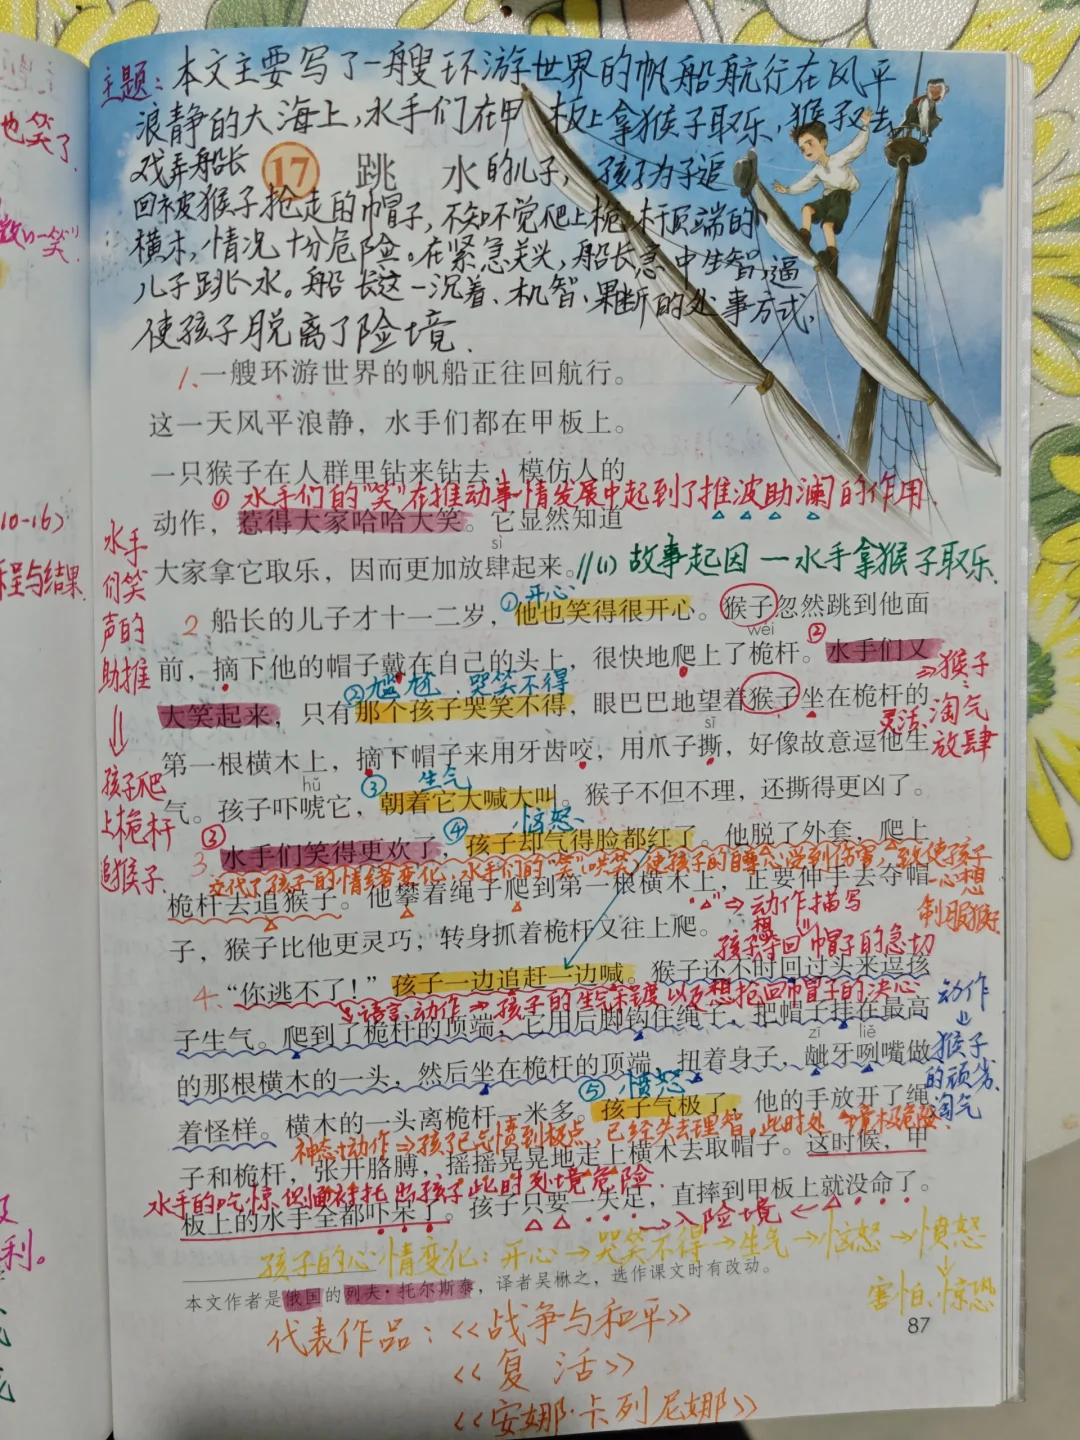 主题：本文主要写了一艘环游世界的帆船航行在风平
浪静的大海上，水手们在甲板上拿猴子取乐，猴子又去
戏弄船长的儿子，孩子为了追
17 跳水
回被猴子抢走的帽子，不知不觉爬上桅杆顶端的
横木，情况十分危险。在紧急关头，船长急中生智，逼
儿子跳水。船长这一沉着、机智、果断的处事方式，
使孩子脱离了险境．
1、一艘环游世界的帆船正往回航行。
这一天风平浪静，水手们都在甲板上。
一只猴子在人群里钻来钻去，模仿人的
① 水手们的“笑”在推动事情发展中起到了推波助澜的作用．
动作，惹得大家哈哈大笑。它显然知道
sì
大家拿它取乐，因而更加放肆起来。//(1) 故事起因 — 水手拿猴子取乐．
①开心
2 船长的儿子才十一二岁，他也笑得很开心。猴子忽然跳到他面
wéi
②
前，摘下他的帽子戴在自己的头上，很快地爬上了桅杆。水手们又
②尴尬、哭笑不得
大笑起来，只有那个孩子哭笑不得，眼巴巴地望着猴子坐在桅杆的
⇒猴子：
灵活、淘气
放肆
sī
第一根横木上，摘下帽子来用牙齿咬，用爪子撕，好像故意逗他生
hǔ
③ 生气
气。孩子吓唬它，朝着它大喊大叫。猴子不但不理，还撕得更凶了。
③
④ 恼怒
3、水手们笑得更欢了，孩子却气得脸都红了。他脱了外套，爬上
交代了孩子的情绪变化，水手们的“笑”哄笑，使孩子的自尊心受到伤害，致使孩子
一心想
制服猴子
桅杆去追猴子。他攀着绳子爬到第一根横木上，正要伸手去夺帽
⇒动作描写
子，猴子比他更灵巧，转身抓着桅杆又往上爬。
孩子想夺回帽子的急切
4、“你逃不了！”孩子一边追赶一边喊。猴子还不时回过头来逗孩
语言、动作⇒孩子的生气程度以及想抢回帽子的决心
子生气。爬到了桅杆的顶端，它用后脚钩住绳子，把帽子挂在最高
zī liě
的那根横木的一头，然后坐在桅杆的顶端，扭着身子，龇牙咧嘴做
动作
猴子
的顽劣、
淘气
⑤ 愤怒
着怪样。横木的一头离桅杆一米多。孩子气极了，他的手放开了绳
神态+动作⇒孩子已气愤到极点，已经失去理智，此时处境极危险．
子和桅杆，张开胳膊，摇摇晃晃地走上横木去取帽子。这时候，甲
水手的吃惊，侧面衬托出孩子此时的处境危险．
板上的水手全都吓呆了。孩子只要一失足，直摔到甲板上就没命了。
险境
孩子的心情变化：开心→哭笑不得→生气→恼怒→愤怒
害怕、惊恐
本文作者是俄国的列夫·托尔斯泰，译者吴楙之，选作课文时有改动。
87
代表作品：《战争与和平》
《复活》
《安娜·卡列尼娜》
水手
们笑
声的
助推
孩子爬
上桅杆
追猴子．
也笑了
10-16)
程与结果
利。